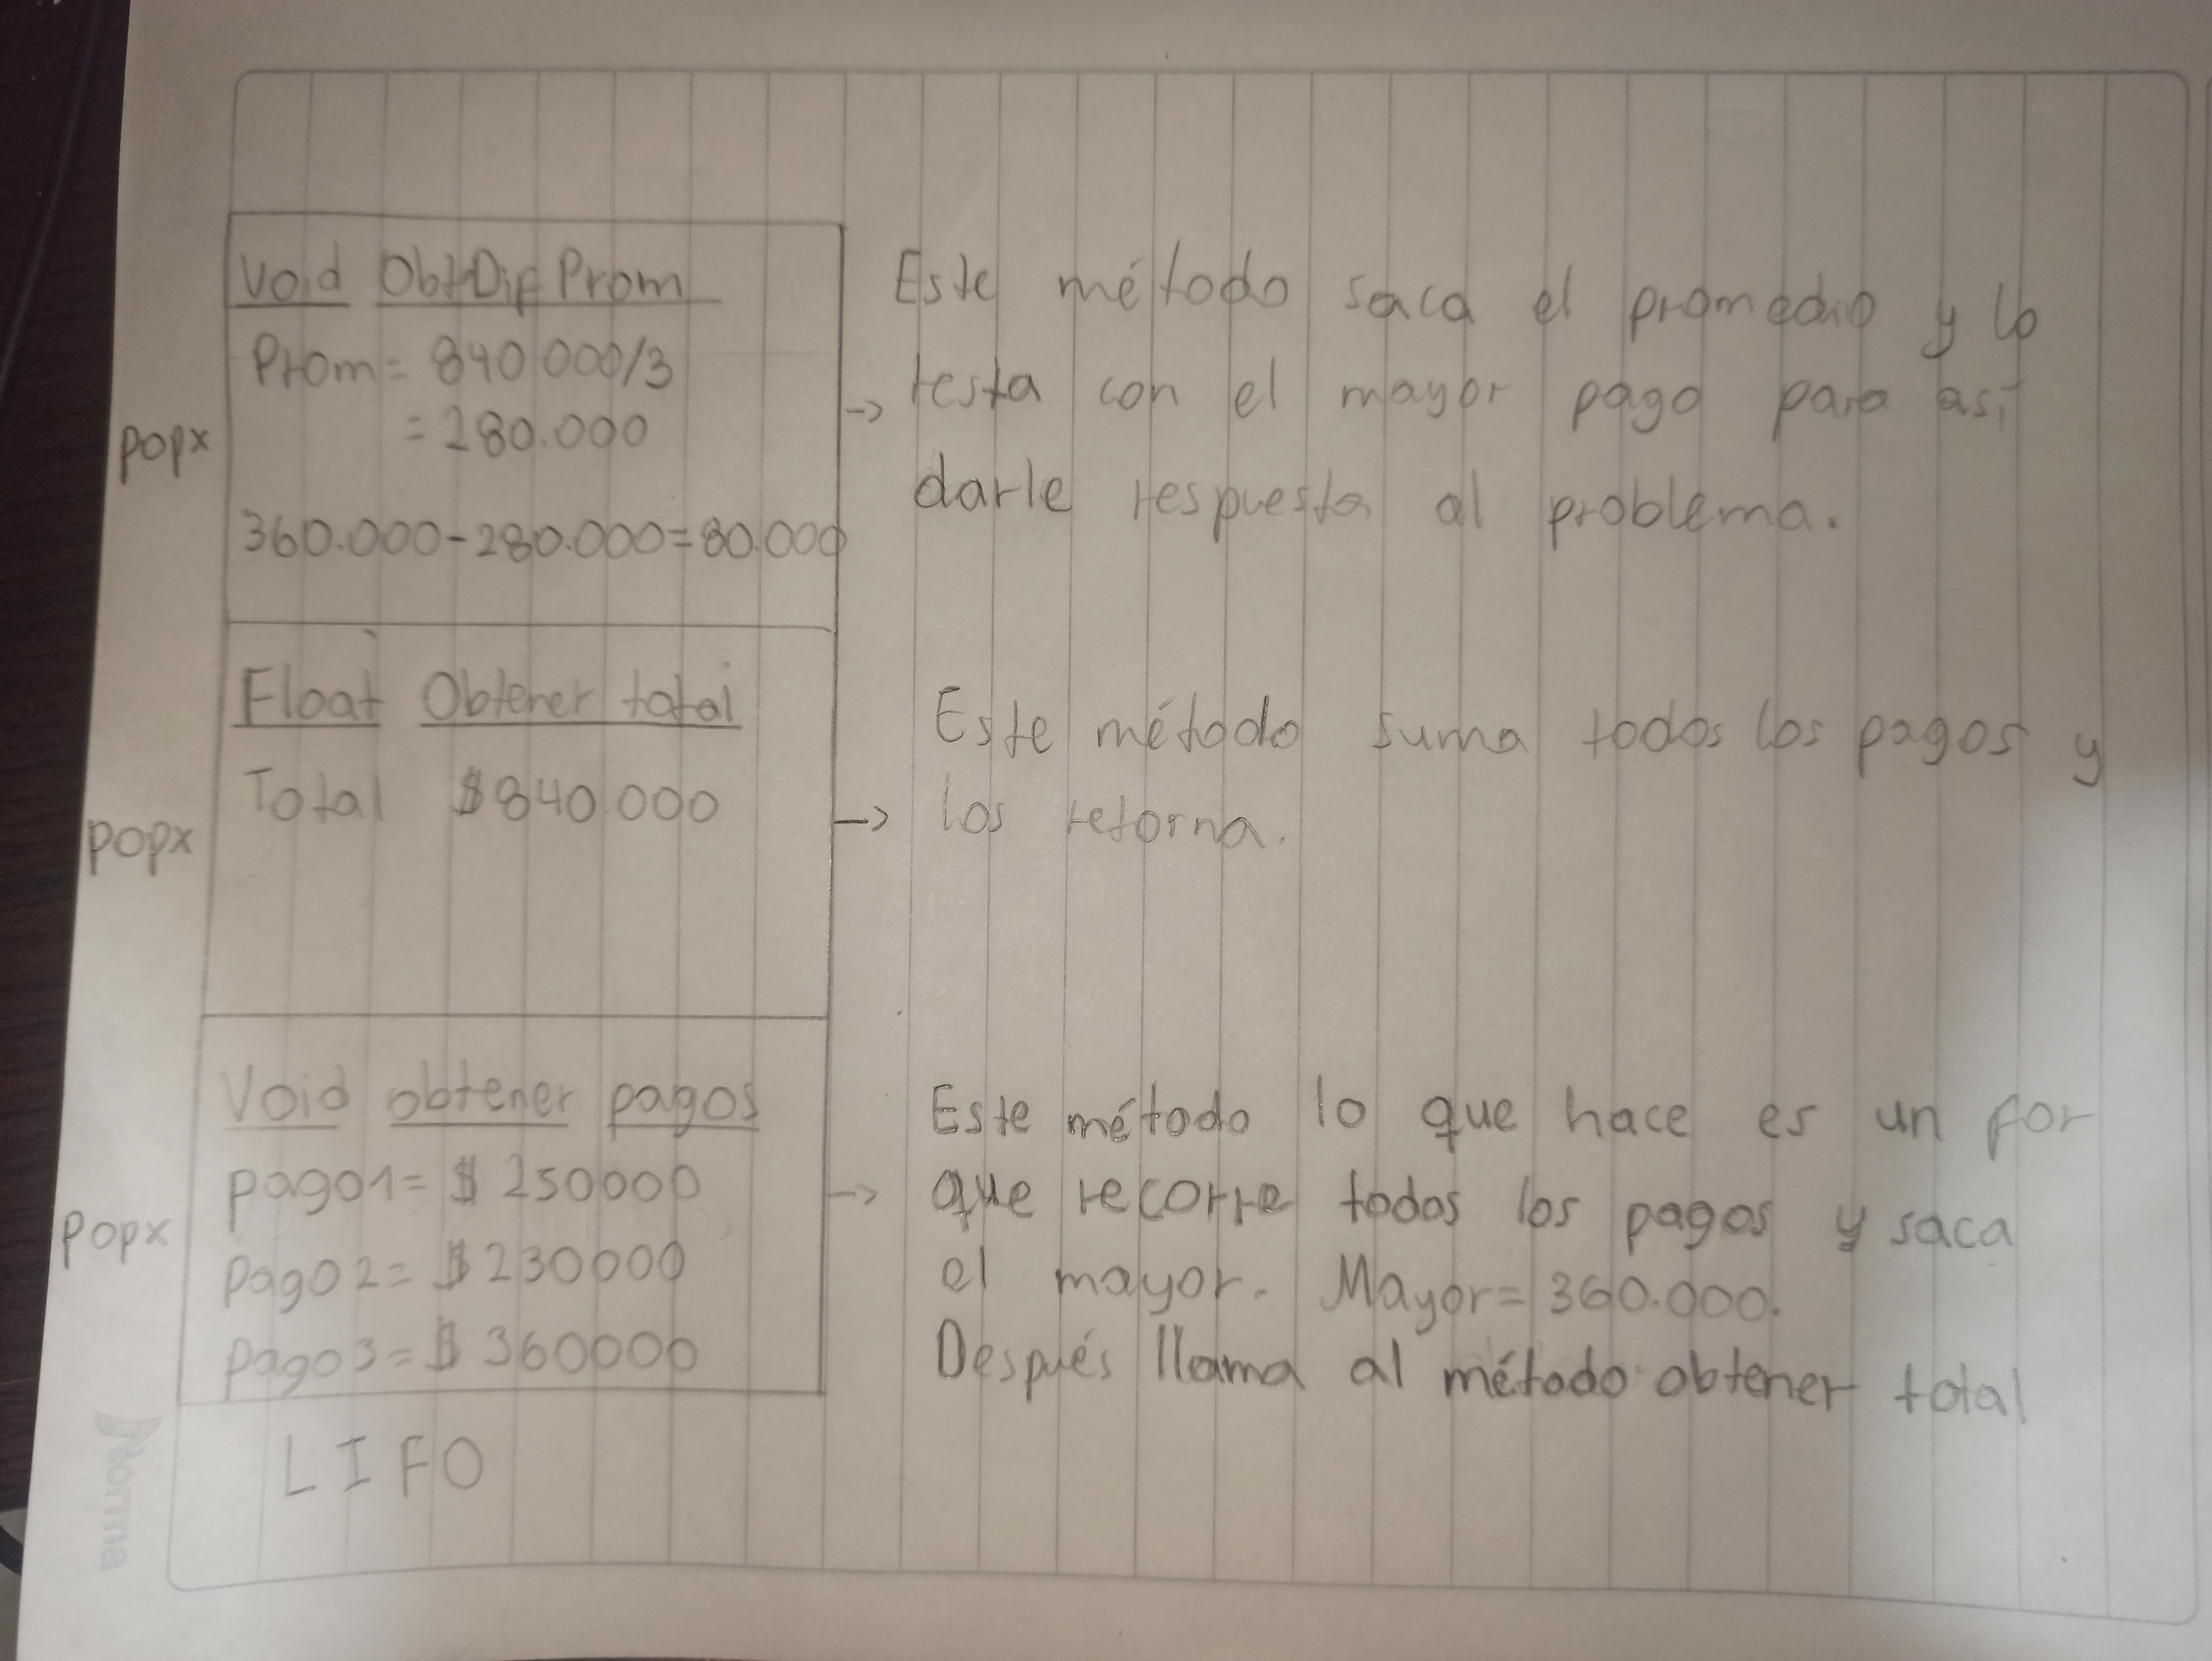 Void ObtDif Prom
Prom = 840 000/3
= 280.000
popx
360.000-280.000=80.000
Este método saca el promedio y lo
-> resta con el mayor pago para así
darle respuesta al problema.
Float Obtener total
Total $840.000
popx
Este método suma todos los pagos y
-> los retorna.
Void obtener pagos
pago1= $ 250000
popx
pago2= $ 230000
pago3= $ 360000
Este método lo que hace es un for
-> que recorre todos los pagos y saca
el mayor. Mayor= 360.000.
Después llama al método obtener total
LIFO
Norma